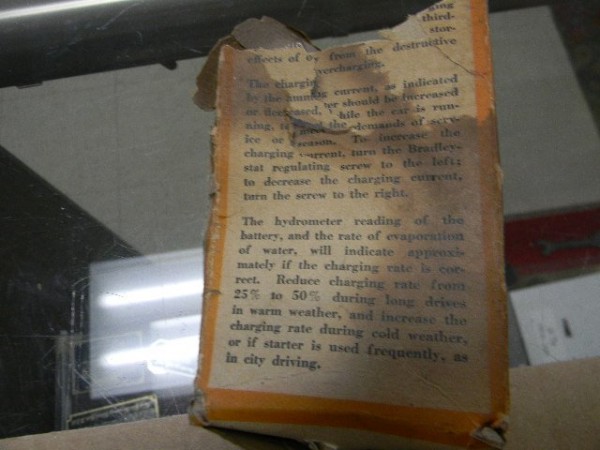 ging
third-
stor-
effects of o from the destructive
vercharging.
The chargin current, as indicated
by the amm er should be increased
or decreased, while the car is run-
ning, to meet the demands of serv-
ice or season. To increase the
charging current, turn the Bradley-
stat regulating screw to the left;
to decrease the charging current,
turn the screw to the right.
The hydrometer reading of the
battery, and the rate of evaporation
of water, will indicate approxi-
mately if the charging rate is cor-
rect. Reduce charging rate from
25% to 50% during long drives
in warm weather, and increase the
charging rate during cold weather,
or if starter is used frequently, as
in city driving.